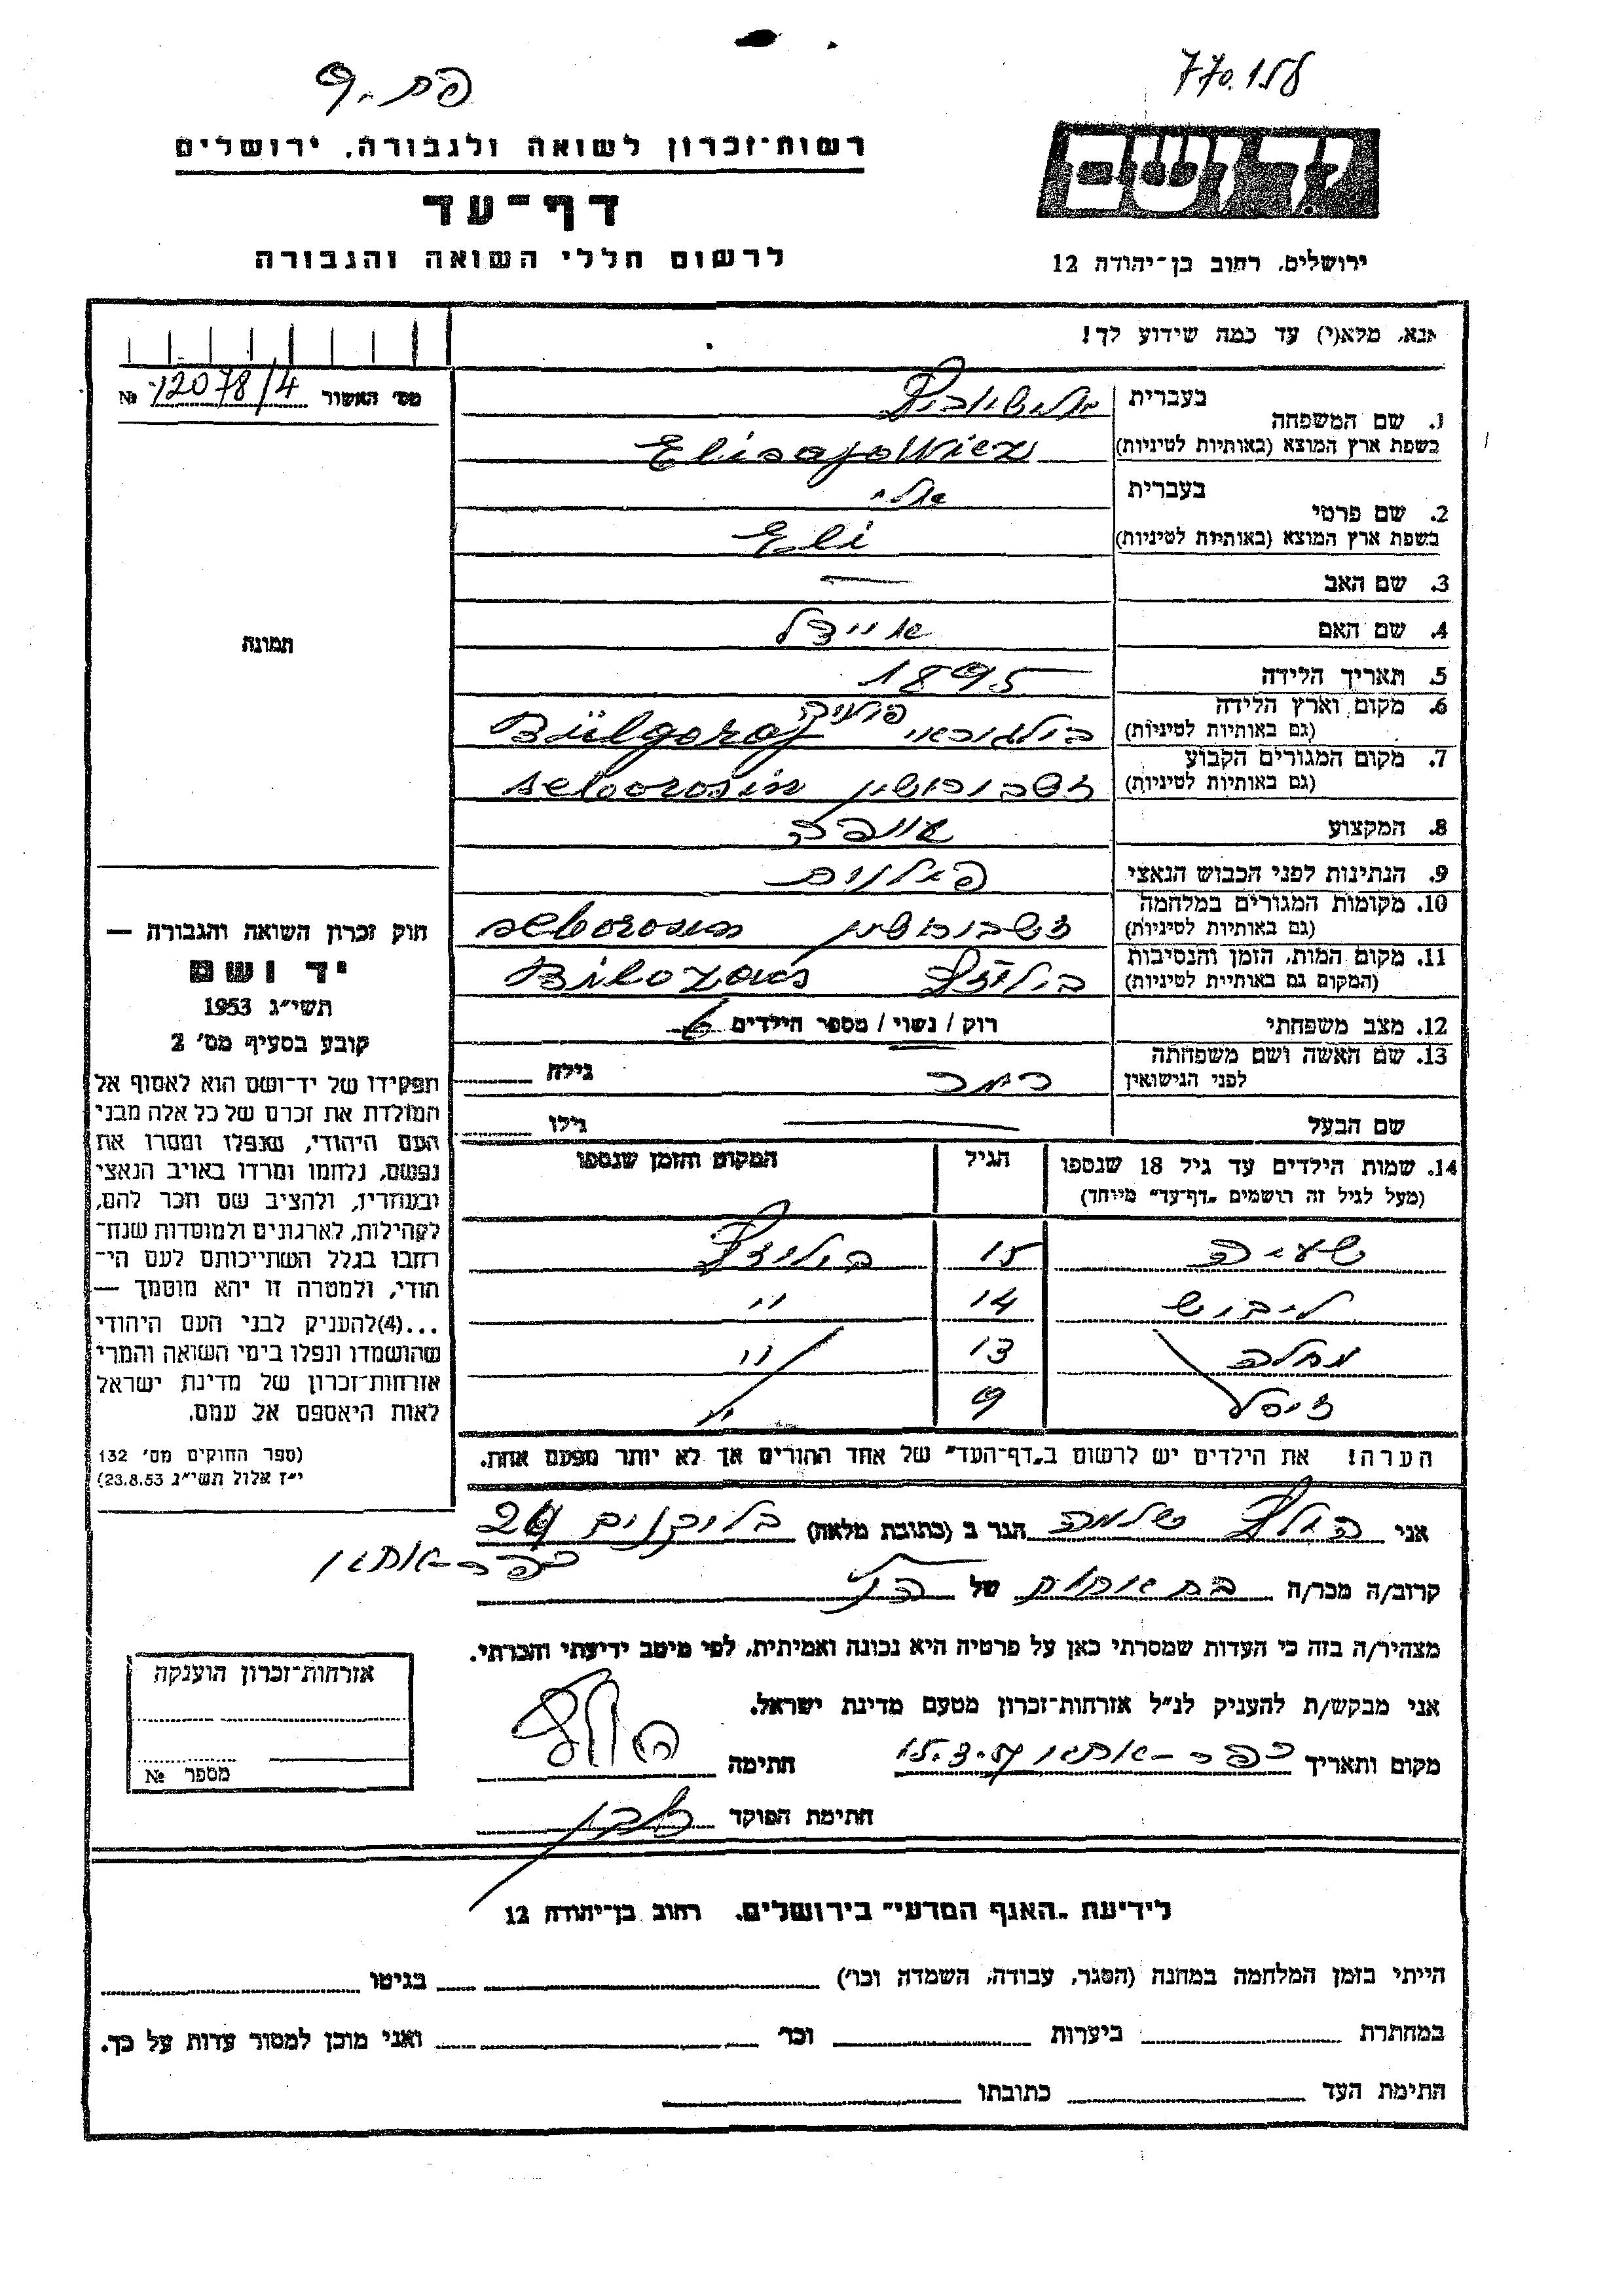 רשות-זכרון לשואה ולגבורה, ירושלים
דף-עד
לרשום חללי השואה והגבורה
ירושלים, רחוב בן-יהודה 12
אנא, מלא(י) עד כמה שידוע לך!
מס' האשור № 12078/4
תמונה
1. שם המשפחה
בעברית
בשפת ארץ המוצא (באותיות לטיניות) Elisajowicz
2. שם פרטי
בעברית אלי
בשפת ארץ המוצא (באותיות לטיניות) Eli
3. שם האב —
4. שם האם איידל
5. תאריך הלידה 1895
6. מקום וארץ הלידה
(גם באותיות לטיניות) בילגוראי Bülgoraj
7. מקום המגורים הקבוע
(גם באותיות לטיניות) שצבורושין seborosin
8. המקצוע אופה
9. הנתינות לפני הכבוש הנאצי
10. מקומות המגורים במלחמה
(גם באותיות לטיניות) שצבורושין seborosin
11. מקום המות, הזמן והנסיבות
(המקום גם באותיות לטיניות)
12. מצב משפחתי רווק / נשוי / מספר הילדים 6
13. שם האשה ושם משפחתה
לפני הנישואין
גילה
שם הבעל גילו
14. שמות הילדים עד גיל 18 שנספו
(מעל לגיל זה רושמים "דף-עד" מיוחד)
הגיל
המקום והזמן שנספו
שעיה 15
לייבוש 14 "
מחלה 13 "
ציפל 9 "
הערה! את הילדים יש לרשום ב"דף-העד" של אחד ההורים אך לא יותר מפעם אחת.
חוק זכרון השואה והגבורה —
יד ושם
תשי"ג 1953
קובע בסעיף מס' 2
תפקידו של יד-ושם הוא לאסוף אל
המולדת את זכרם של כל אלה מבני
העם היהודי, שנפלו ומסרו את
נפשם, נלחמו ומרדו באויב הנאצי
ובעוזריו, ולהציב שם וזכר להם,
לקהילות, לארגונים ולמוסדות שנח־
רבו בגלל השתייכותם לעם הי־
הודי, ולמטרה זו יהא מוסמך —
...(4) להעניק לבני העם היהודי
שהושמדו ונפלו בימי השואה והמרי
אזרחות-זכרון של מדינת ישראל
לאות היאספם אל עמם.
(ספר החוקים מס' 132
י"ז אלול תשי"ג 23.8.53)
אני הולץ שלמה הגר ב (כתובת מלאה)
כפר-אתא
קרוב/ה מכר/ה של הנ"ל
מצהיר/ה בזה כי העדות שמסרתי כאן על פרטיה היא נכונה ואמיתית, לפי מיטב ידיעתי והכרתי.
אני מבקש/ת להעניק לנ"ל אזרחות-זכרון מטעם מדינת ישראל.
מקום ותאריך כפר-אתא חתימה
חתימת הפוקד
אזרחות-זכרון הוענקה
מספר №
לידיעת "האגף המדעי" בירושלים, רחוב בן-יהודה 12
הייתי בזמן המלחמה במחנה (הסגר, עבודה, השמדה וכו') בגיטו
במחתרת ביערות וכו' ואני מוכן למסור עדות על כך.
חתימת העד כתובתו